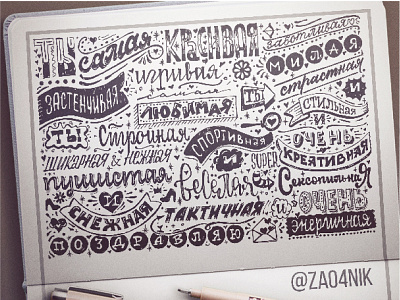 ТЫ самая красивая заботливая
игривая милая
застенчивая любимая ты страстная
и стильная и
ты! стройная спортивная очень
шикарная & нежная и super креативная
пушистая весёлая сексопильная
и снежная тактичная и очень
поздравляю энергичная
@ZAO4NIK